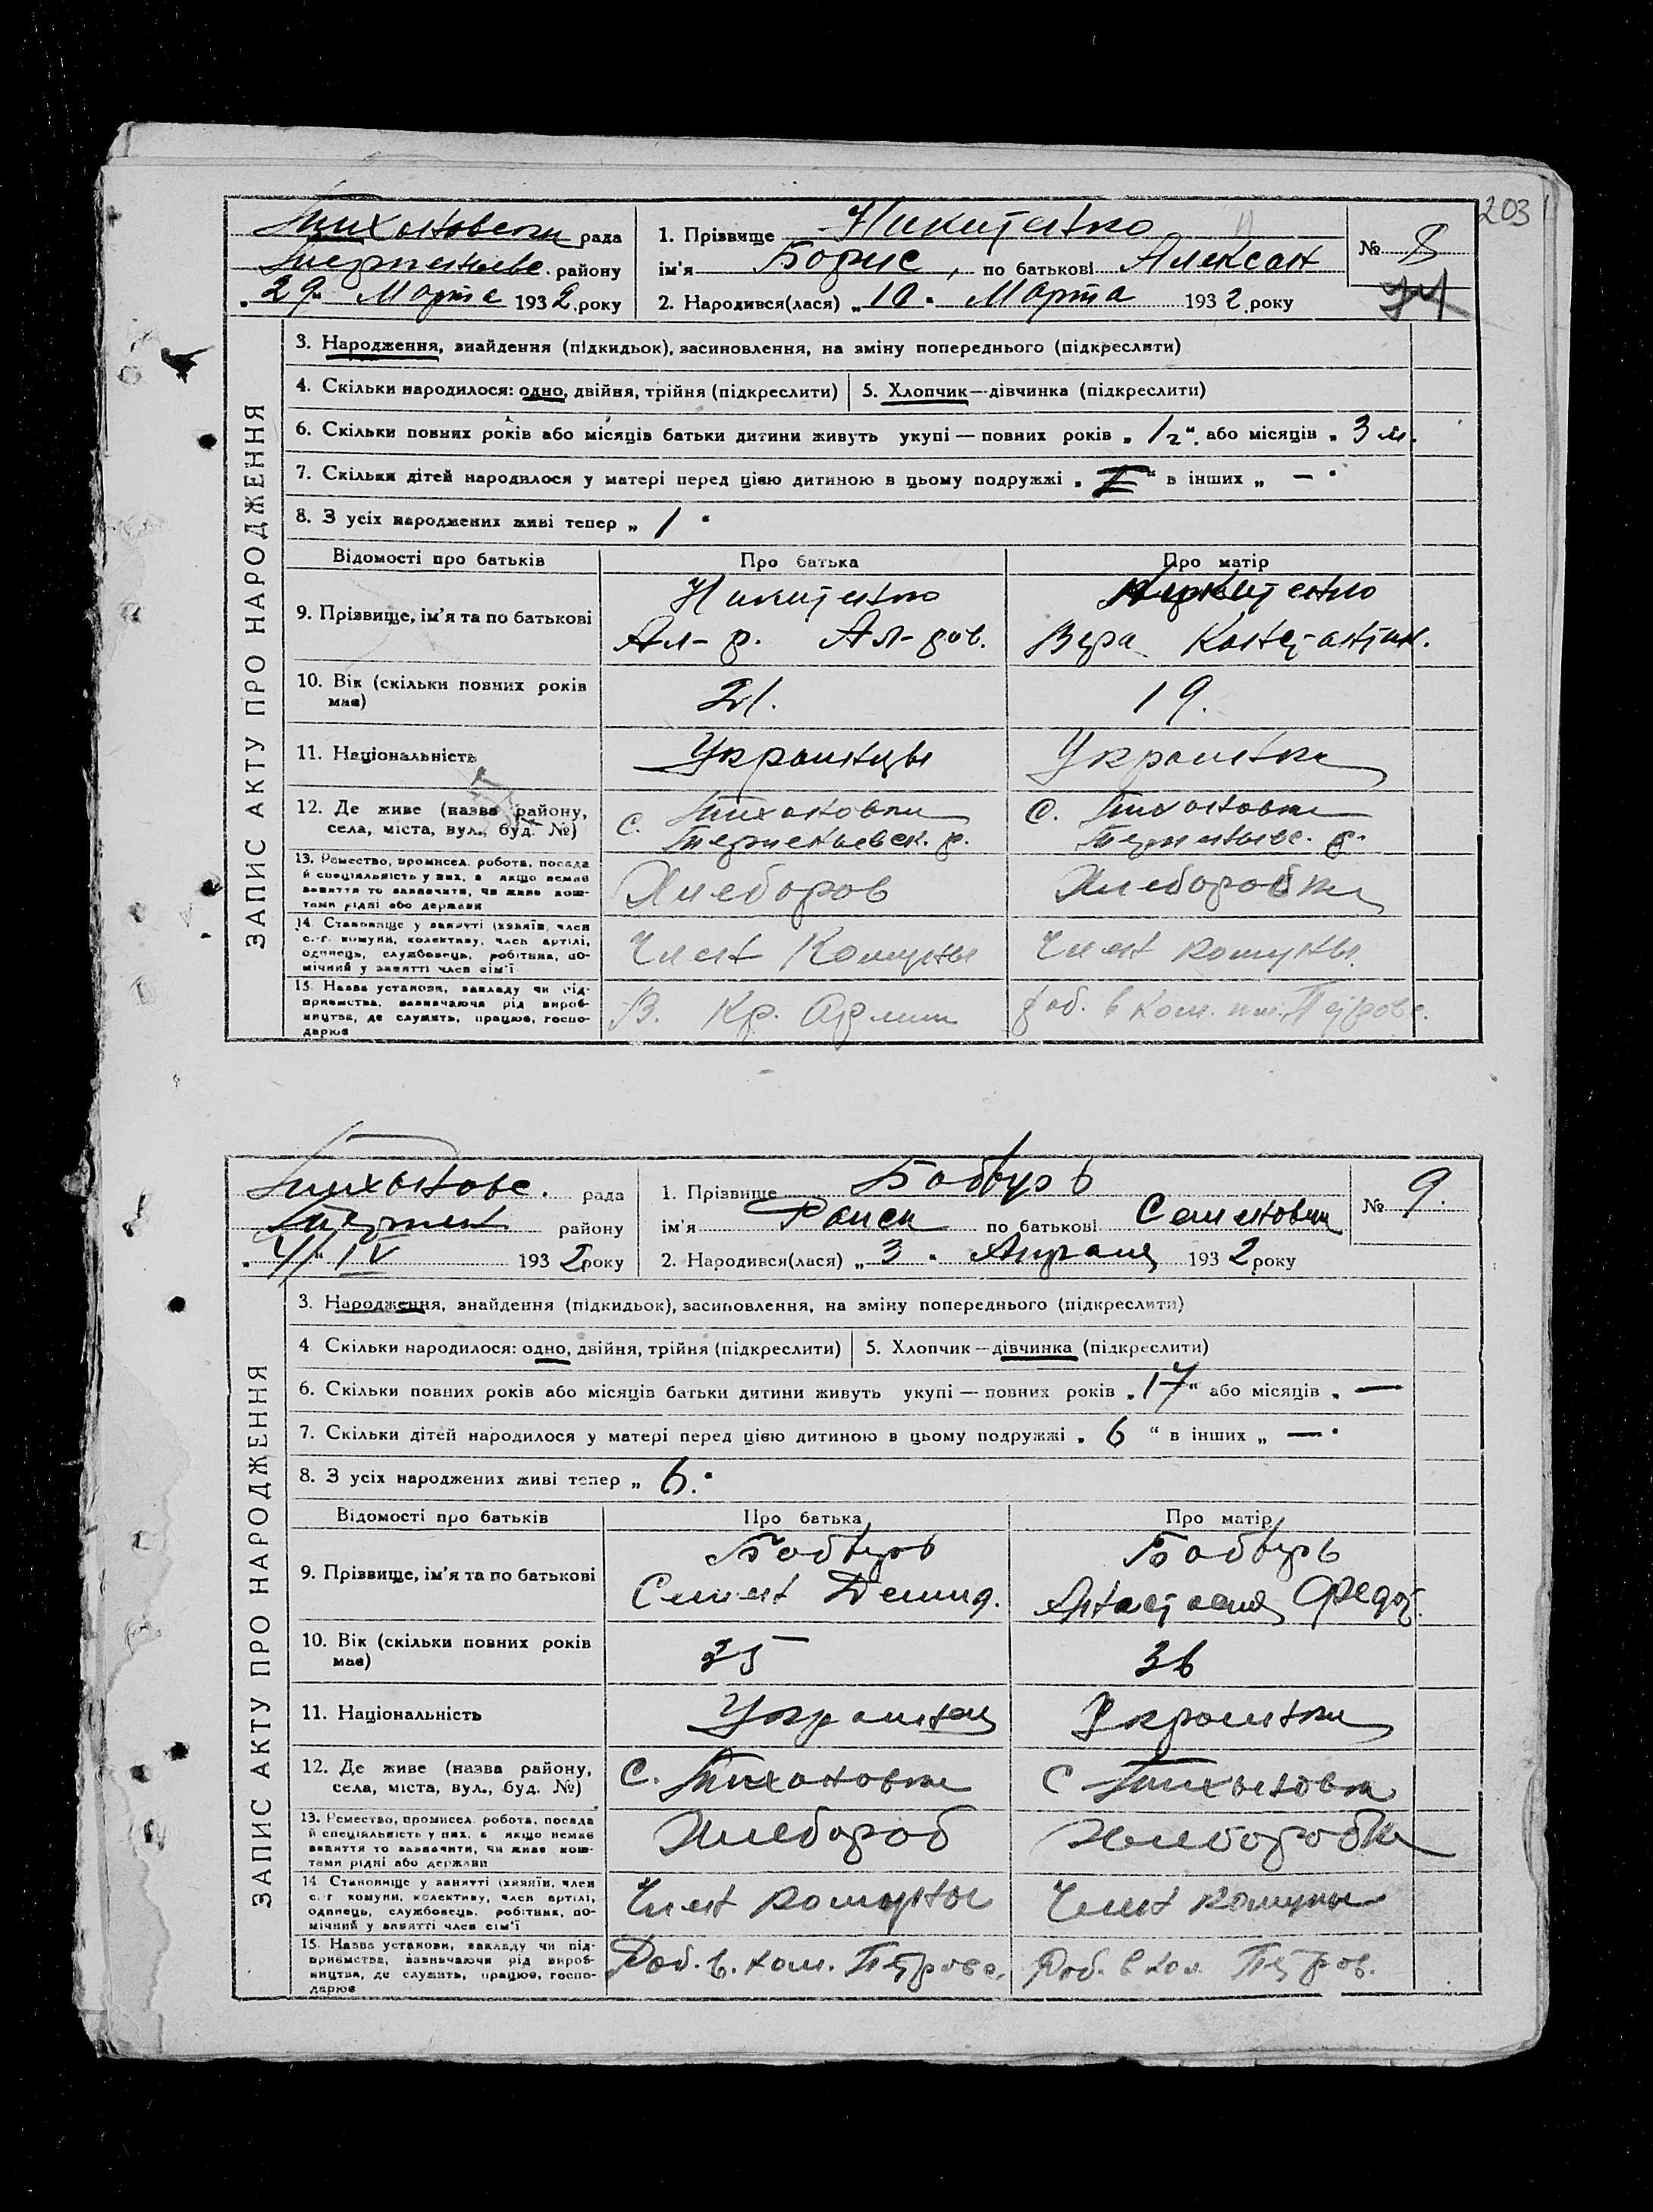 203
Тихоновски рада
1. Прізвище Никитенко
№ 8
район
ім'я Борис, по батькові Алексан
"29" Марта 1932 року
2. Народився(лася) „10" Марта 1932 року
ЗАПИС АКТУ ПРО НАРОДЖЕННЯ
3. Народження, знайдення (підкидьок), засиновлення, на зміну попереднього (підкреслити)
4. Скільки народилося: одно, двійня, трійня (підкреслити)
5. Хлопчик—дівчинка (підкреслити)
6. Скільки повних років або місяців батьки дитини живуть укупі — повних років „1/2" або місяців „3 м.
7. Скільки дітей народилося у матері перед цією дитиною в цьому подружжі „ " в інших „ — "
8. З усіх народжених живі тепер „ 1 "
Відомості про батьків Про батька Про матір
9. Прізвище, ім'я та по батькові
Никитенко
Ал-р. Ал-ров.
Никитенко
Вера Констант
10. Вік (скільки повних років має)
21. 19.
11. Національність
Украинцы Украинка
12. Де живе (назва району, села, міста, вул., буд. №)
с. Тихоновки
с. Тихоновки
13. Ремество, промисел, робота, посада й спеціяльність у них, а якщо немає заняття то зазначити, чи живе коштами рідні або держави
Хлебороб Хлеборобка
14. Становище у занятті (хазяїн, член с.-г. комуни, колективу, член артілі, одинець, службовець, робітник, помічний у занятті член сім'ї
Член Комуны Член комуны.
15. Назва установи, закладу чи підприємства, зазначаючи рід виробництва, де служить, працює, господарює
В. Кр. Армии
раб. в ком. им. Петровс.
Тихоновс. рада
1. Прізвище Бабвуръ
№ 9.
район
ім'я Раиса по батькові Семеновна
"4" IV 1932 року
2. Народився(лася) „3" Апреля 1932 року
ЗАПИС АКТУ ПРО НАРОДЖЕННЯ
3. Народження, знайдення (підкидьок), засиновлення, на зміну попереднього (підкреслити)
4 Скільки народилося: одно, двійня, трійня (підкреслити)
5. Хлопчик—дівчинка (підкреслити)
6. Скільки повних років або місяців батьки дитини живуть укупі — повних років „17" або місяців „ —
7. Скільки дітей народилося у матері перед цією дитиною в цьому подружжі „ 6 " в інших „ — "
8. З усіх народжених живі тепер „ 6. "
Відомості про батьків Про батька Про матір
9. Прізвище, ім'я та по батькові
Бабвуръ
Семен Демид.
Бабвуръ
Анастасия Федот.
10. Вік (скільки повних років має)
35 36
11. Національність
Украинец Украинка
12. Де живе (назва району, села, міста, вул., буд. №)
с. Тихоновки
с Тихоновк
13. Ремество, промисел, робота, посада й спеціяльність у них, а якщо немає заняття то зазначити, чи живе коштами рідні або держави
Хлебороб Хлеборобка
14. Становище у занятті (хазяїн, член с.-г. комуни, колективу, член артілі, одинець, службовець, робітник, помічний у занятті член сім'ї
Член комуны Член комуны
15. Назва установи, закладу чи підприємства, зазначаючи рід виробництва, де служить, працює, господарює
Раб. в. ком. Петровс.
Раб. в ком. Петров.